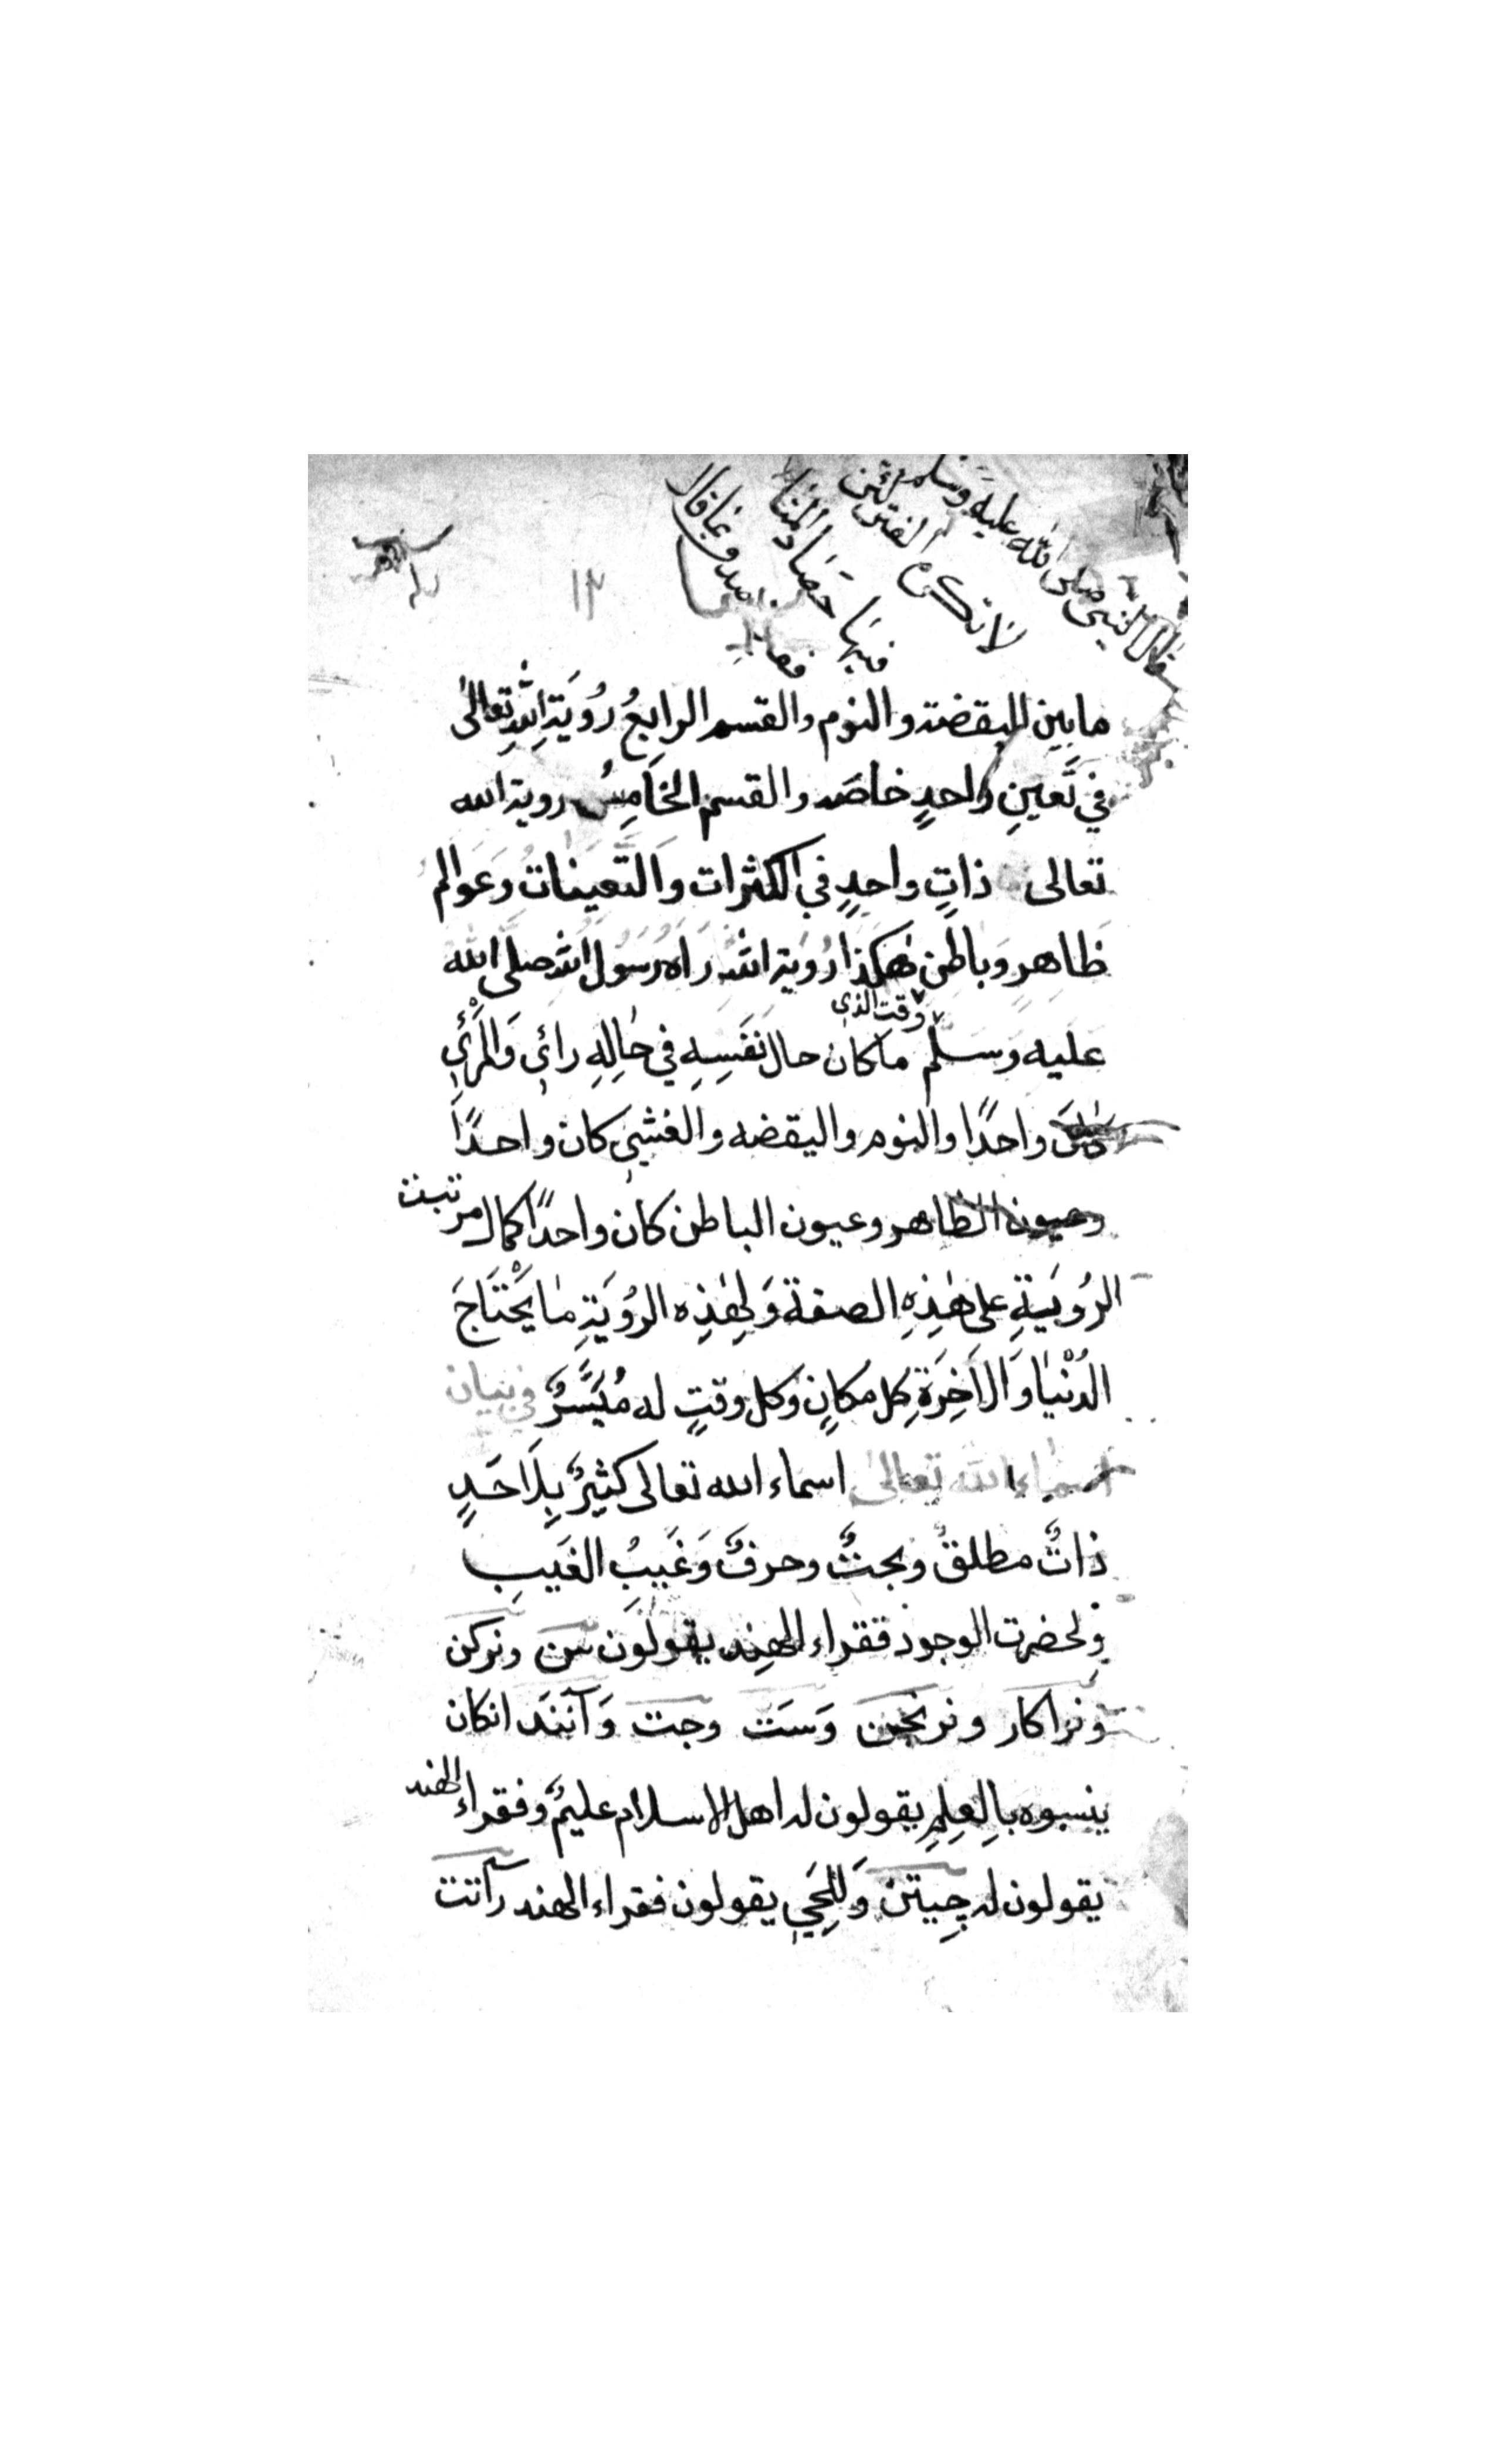 قال النبي صلى الله عليه وسلم
لا تكره الفتن لئن
فيها حصاد المنا
١٢
ما بين لليقضة والنوم والقسم الرابعُ رُويَةِ اللهِ تعالىٰ
في تَعينِ واحدٍ خاصَه والقسم الخَامِسُ روية الله
تعالى ذاتٍ واحدٍ في الكثرات والتعينات وعَوالم
ظاهر وَباطن هٰكذا رُوَية الله راه رَسُول الله صلى الله
وقت الذي
عليه وَسَلم ما كان حال نَفَسِهِ في حٰالِهِ رائي وَالمَرْئي
واحدًا والنوم واليقضه والغشي كان واحدًا
وعيون الظاهر وعيون الباطن كان واحدًا كمال مرتبت
الرُوَيةِ على هٰذِهِ الصفة وَلِهٰذِه الرُويَةِ مٰا يَحْتَاجَ
الدُنْيٰا وَ الاَخِرَةِ كل مكانٍ وَكل وقتٍ له مُيَسَّرٌ في بيان
اسماء الله تعالىٰ اسماء الله تعالى كثيرٌ بِلاَ حَدٍ
ذاتٌ مطلقٌ وبحتٌ وحرفٌ وَغَيبُ الغَيبِ
وَلحضرت الوجود فقراء الهند يقولون سن ونركن
ونراكار ونرنجن وَسَت وجت وَآنَنَد انكان
ينسبوه بالِعِلِمِ يقولون له اهل الاسلام عليمٌ وفقراء الهند
يقولون له چيتن وَللِحَي يقولون فقراء الهند